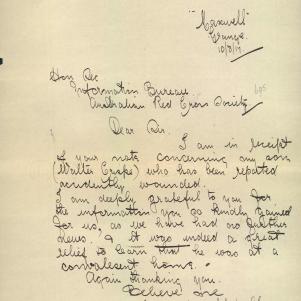 "Maxwell"
Grange
10/8/17
Hon Sec
Information Bureau
Australian Red Cross Society
Dear Sir.
I am in receipt
of your note concerning my son
(Walter) who has been reported
accidently wounded.
I am deeply grateful to you for
the information you so kindly gained
for us, as we have had no further
news. & it was indeed a great
relief to learn that he was at a
convalescent home.
Again thanking you.
Believe me